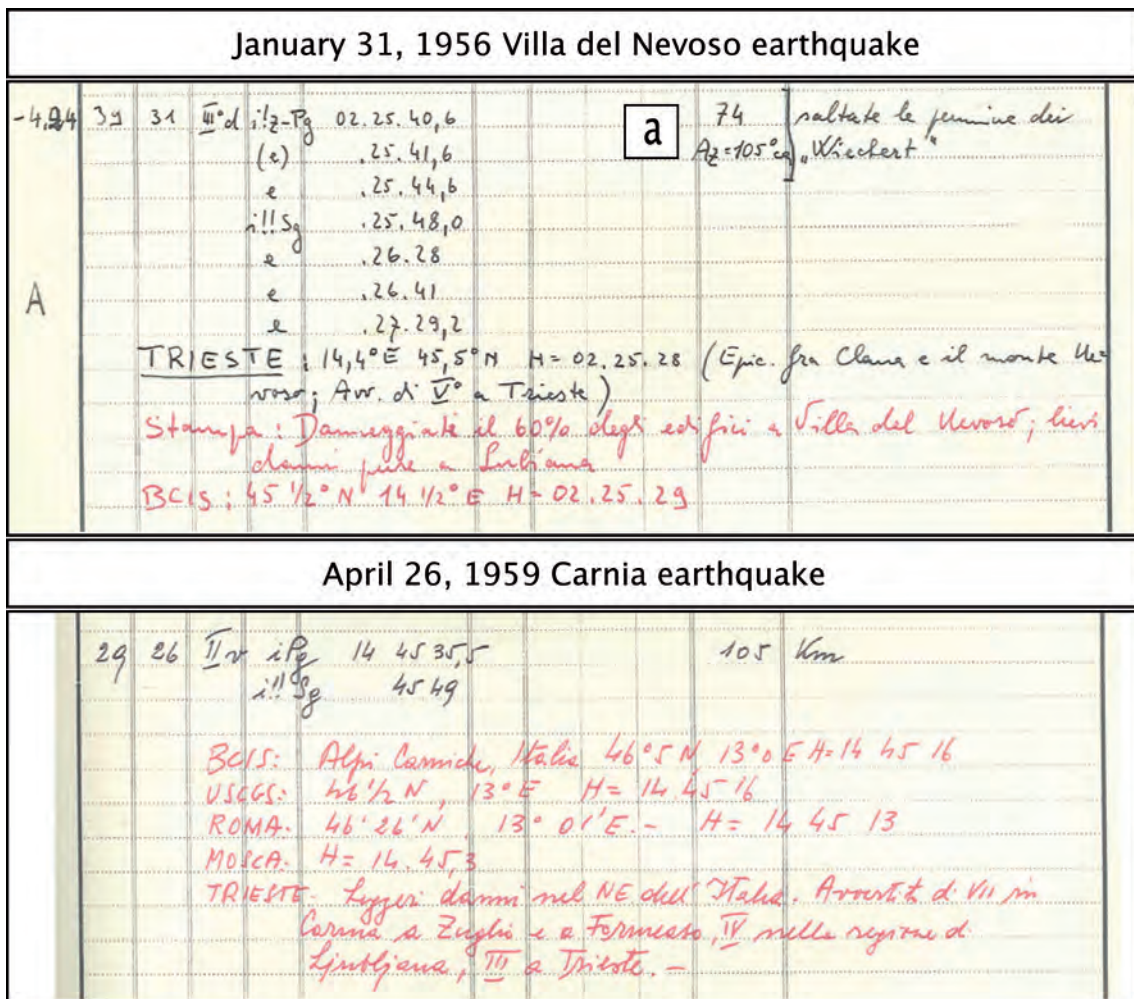 January 31, 1956 Villa del Nevoso earthquake
39 31 III°d i!z-Pg 02.25.40,6 a 74 saltate le pennine dei
(e) .25.41,6 Az=105° cq „Wiechert"
e .25.44,6
i!!Sg .25.48,0
e .26.28
e .26.41
A
e .27.29,2
TRIESTE : 14,4°E 45,5°N H= 02.25.28 (Epic. fra Clana e il monte Ne-
voso; Avv. di V° a Trieste)
Stampa : Danneggiate il 60% degli edifici a Villa del Nevoso; lievi
danni pure a Lubiana
BCIS : 45 1/2° N 14 1/2° E H= 02.25.29
April 26, 1959 Carnia earthquake
29 26 II v iPg 14 45 35,5 105 Km
i!! Sg 45 49
BCIS: Alpi Carniche, Italia 46°5 N, 13°0 E H=14 45 16
USCGS: 46 1/2 N, 13° E H= 14.45 16
ROMA. 46° 26' N, 13° 01' E.- H= 14 45 13
MOSCA. H= 14.45,3
TRIESTE- Leggeri danni nel NE dell'Italia. Avvertita di VII in
Carnia a Zuglio e a Formeaso, IV nella regione di
Ljubljana, III a Trieste. -